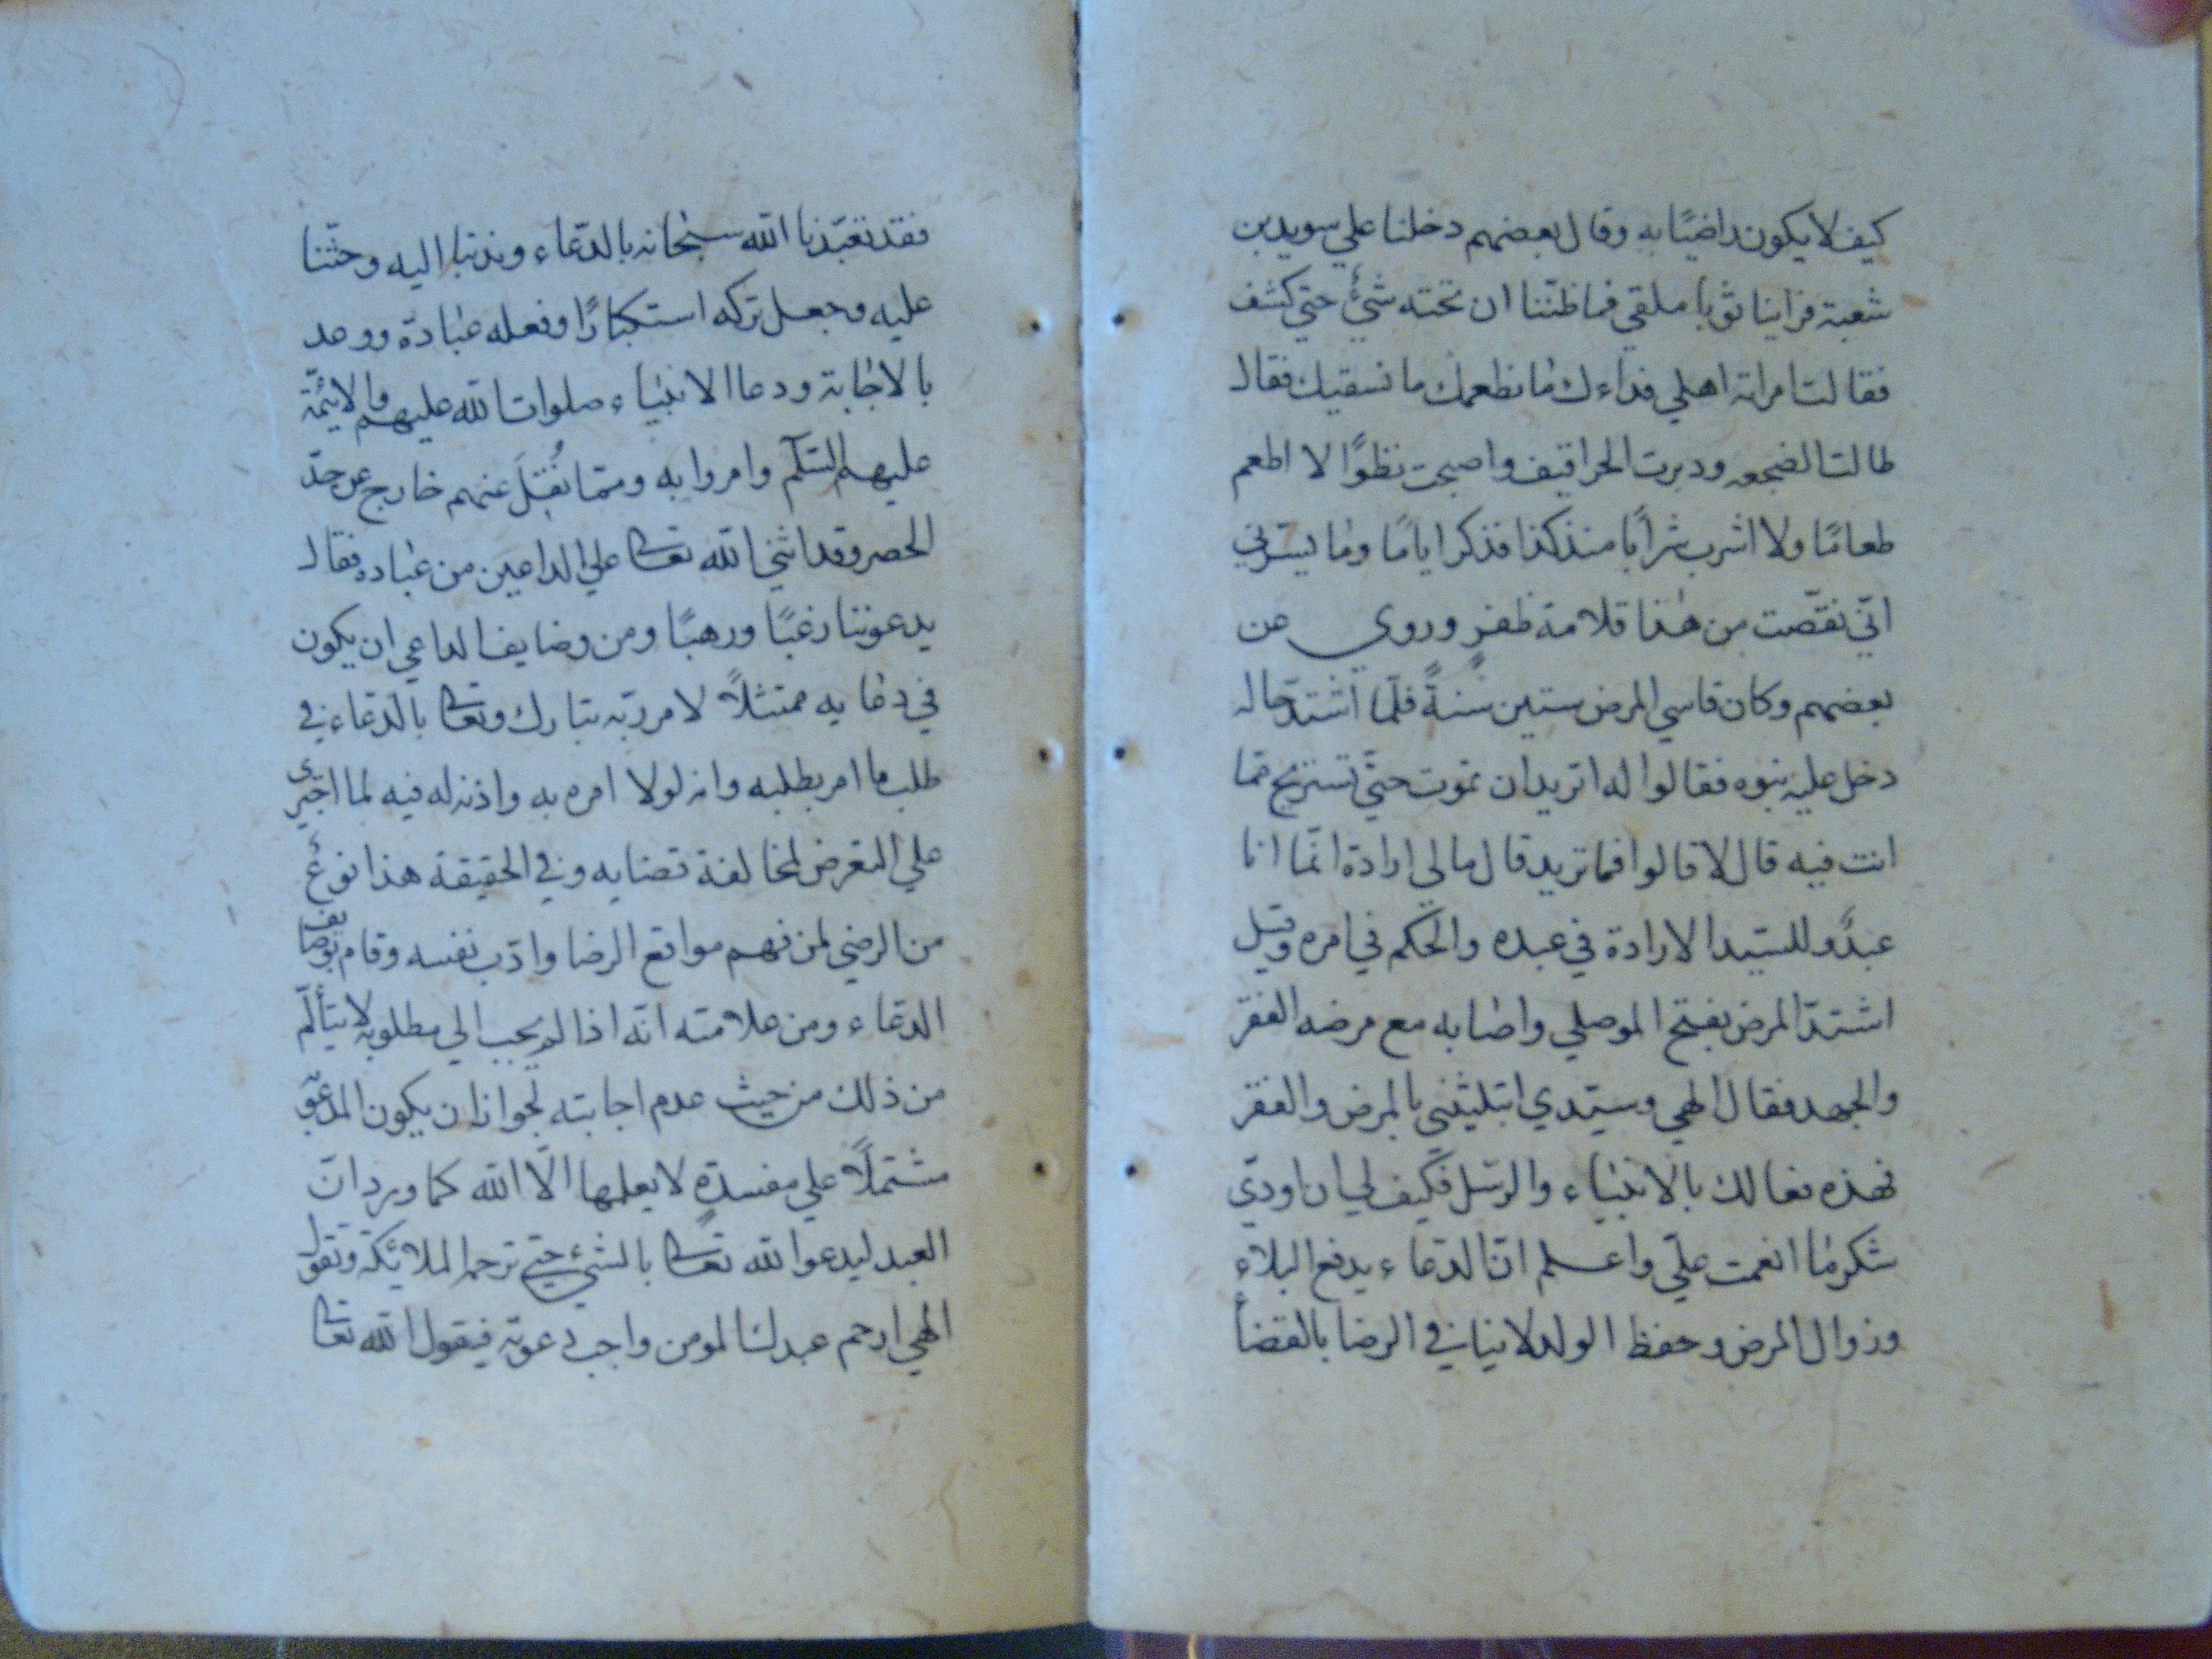 كيف لا يكون راضيًا به وقال بعضهم دخلنا علي سويد بن
شعبة فراينا ثوبا ملقي فما ظننّا ان تحته شيئٌ حتي كشف
فقالت امراته اهلي فداءك ما نطعمك ما نسقيك فقال
طالت الضجعه ودبرت الحراقيف واصبحت نظوًا لا اطعم
طعامًا ولا اشرب شرابًا منذ كذا فذكر ايامًا وما يسّرني
انّي نقّصت من هذا قلامة ظفرٍ وروي عن
بعضهم وكان قاسي المرض ستين سنةً فلمّا اشتدّ حاله
دخل عليه بنوه فقالوا له اتريد ان تموت حتّي تستريح ممّا
انت فيه قال لا قالوا فما تريد قال مالي ارادة انّما انا
عبدٌ وللسيّد الارادة في عبده والحكم في امره وقيل
اشتدّ المرض بفتح الموصلي واصابه مع مرضه الفقر
والجهد فقال الهي وسيّدي ابتليتني بالمرض والفقر
فهذه فعالك بالانبياء والرسل فكيف لي ان اودّي
شكر ما انعمت عليّ واعلم انّ الدّعاء يدفع البلاء
وزوال المرض وحفظ الولد لا ينافي الرضا بالقضاء
فقد تعبّدنا الله سبحانه بالدّعاء وندبنا اليه وحثّنا
عليه وجعل تركه استكبارًا وفعله عبادة ووعد
بالاجابة ودعا الانبياء صلوات الله عليهم والائمّة
عليهم السّلام وامروا به وممّا نُقِلَ عنهم خارج عن حدّ
الحصر وقد اثني الله تعالى علي الداعين من عباده فقال
يدعوننا رغبًا ورهبًا ومن وضايف الداعي ان يكون
في دعايه ممتثلاً لامر ربّه تبارك وتعالى بالدّعاء في
طلب ما امر بطلبه وانه لولا امره به واذنه له فيه لما اجتري
علي التعرض لمخالفة قضايه وفي الحقيقة هذا نوعٌ
من الرضي لمن فهم مواقع الرضا وادّب نفسه وقام بوضايف
الدعاء ومن علامته انّه اذا لم يجب الي مطلوبه لا يتألّم
من ذلك من حيث عدم اجابته لجواز ان يكون المدعوّ
مشتملاً علي مفسدةٍ لا يعلمها الّا الله كما ورد انّ
العبد ليدعوا الله تعالى بالشيء حتي ترحمه الملائكة وتقول
الهي ارحم عبدك المومن واجب دعوته فيقول الله تعالى